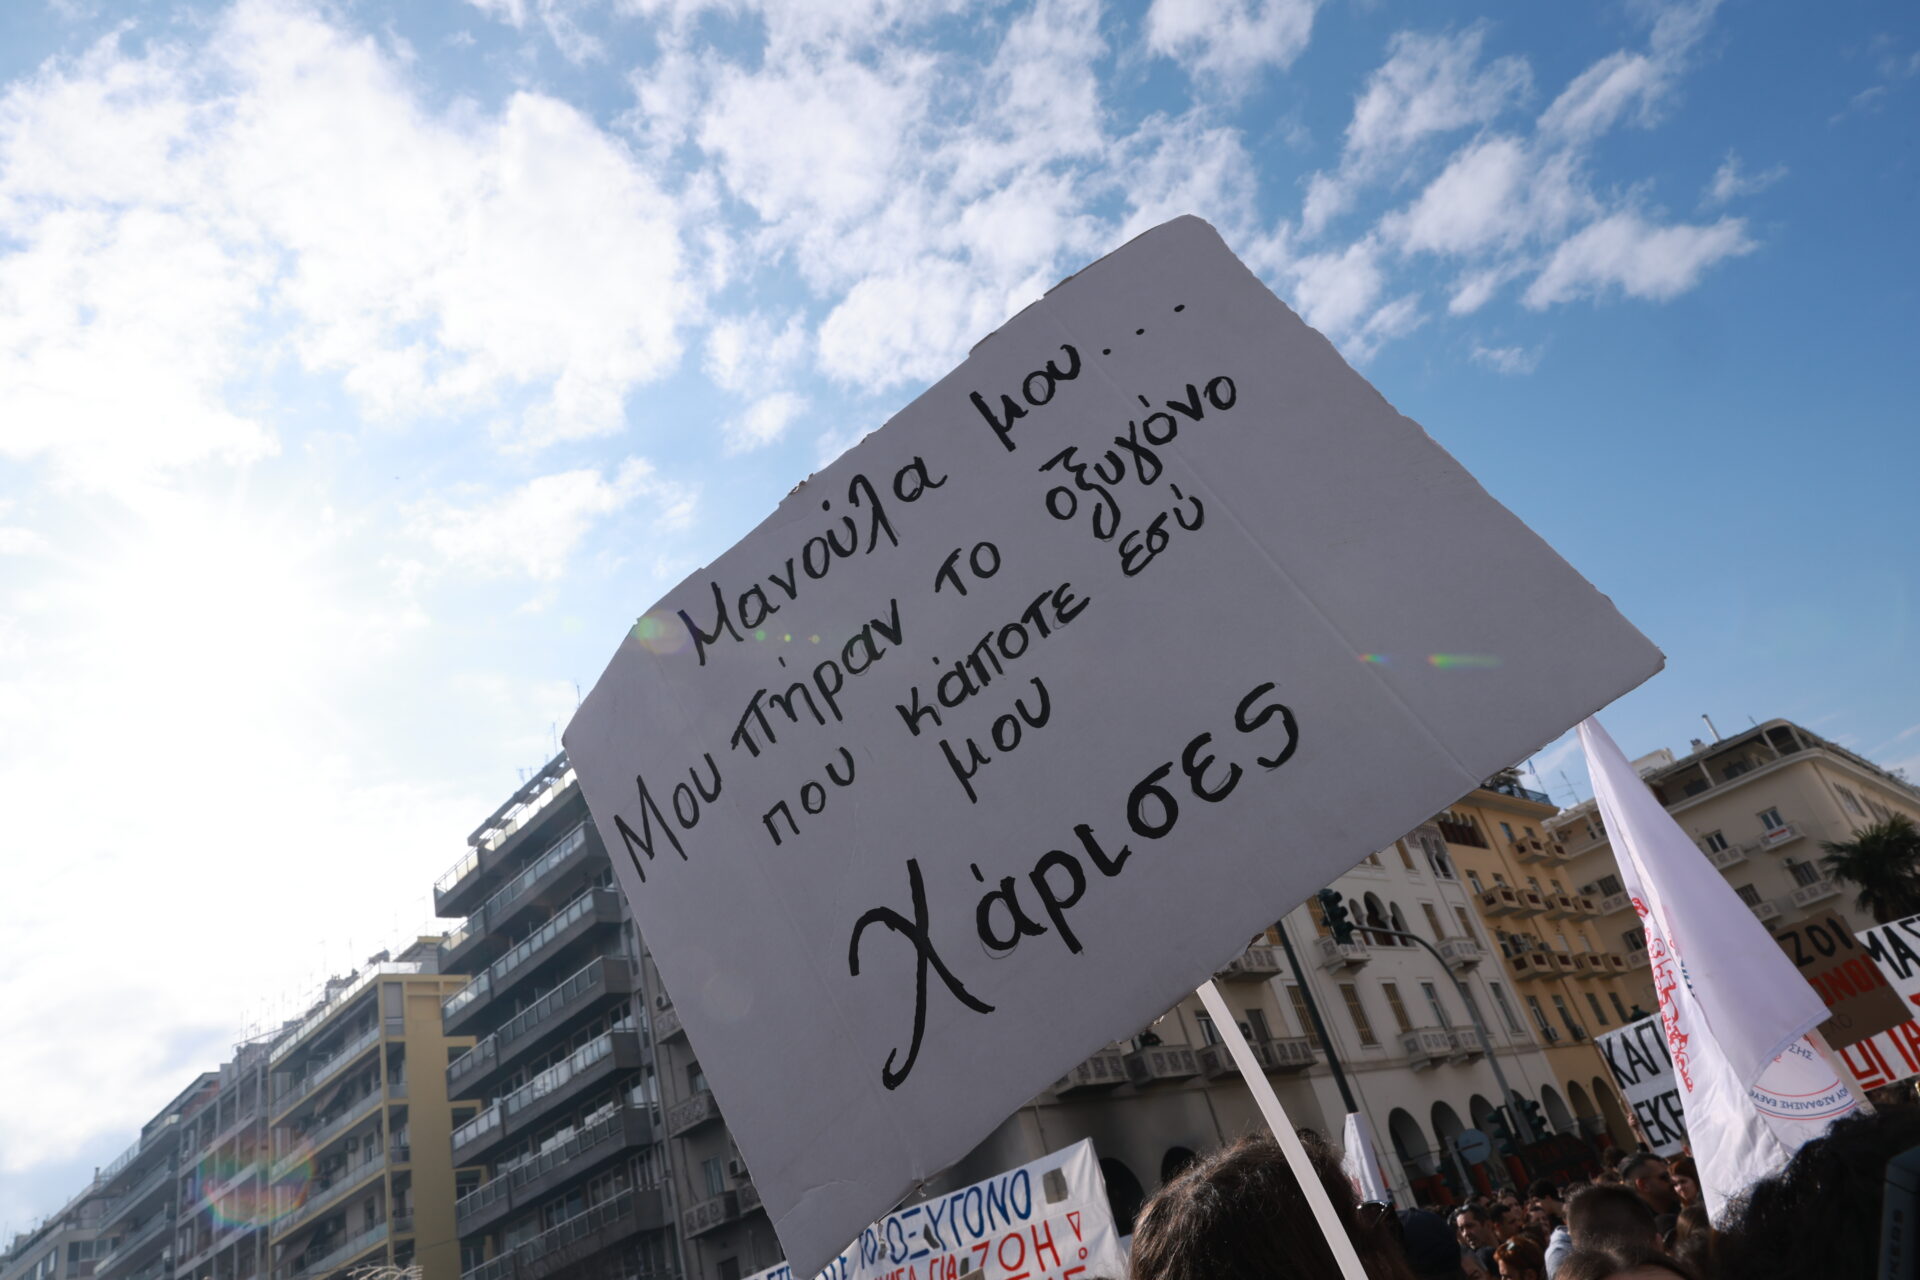 Μανούλα μου...
Μου πήραν το οξυγόνο
που κάποτε εσύ
μου
Χάρισες
ΤΟ ΟΞΥΓΟΝΟ
ΓΙΑ ΖΩΗ!
ΚΑΠ
ΕΚΕ
ΣΗΣ
ΖΟΙ
ΜΑΣ